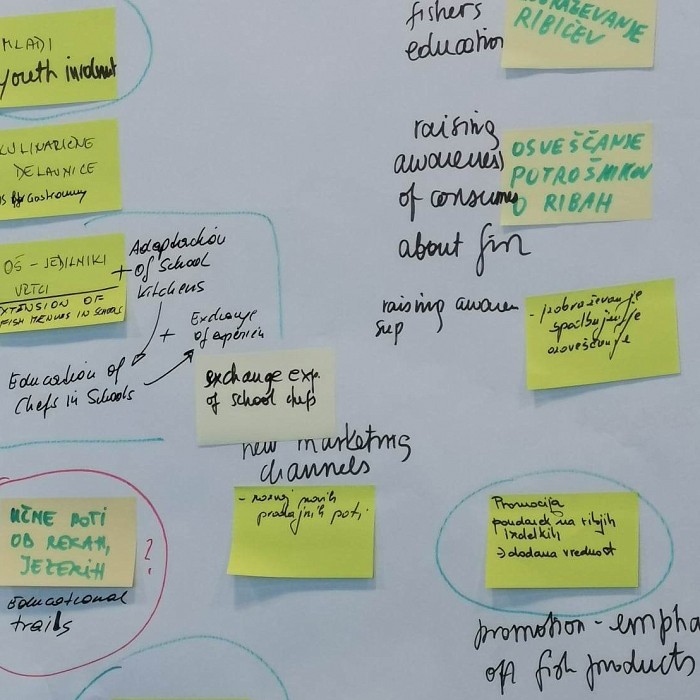 MLADI
youth
KULINARIČNE
DELAVNICE
OŠ - JEDILNIKI
VRTCI
EXTENSION OF
FISH MENUS IN SCHOOLS
Adaptation
+ of School
kitchens
+ Exchange
of
Education of
Chefs in Schools
exchange exp.
of school chefs
new marketing
channels
- razvoj novih
prodajnih poti
UČNE POTI
OB REKAH,
JEZERIH
?
Educational
trails
fishers
education
RIBIČEV
raising
awareness
of consumers
about
OSVEŠČANJE
POTROŠNIKOV
O RIBAH
raising
Promocija
poudarek na ribjih
izdelkih
→ dodana vrednost
promotion - empha
on fish products